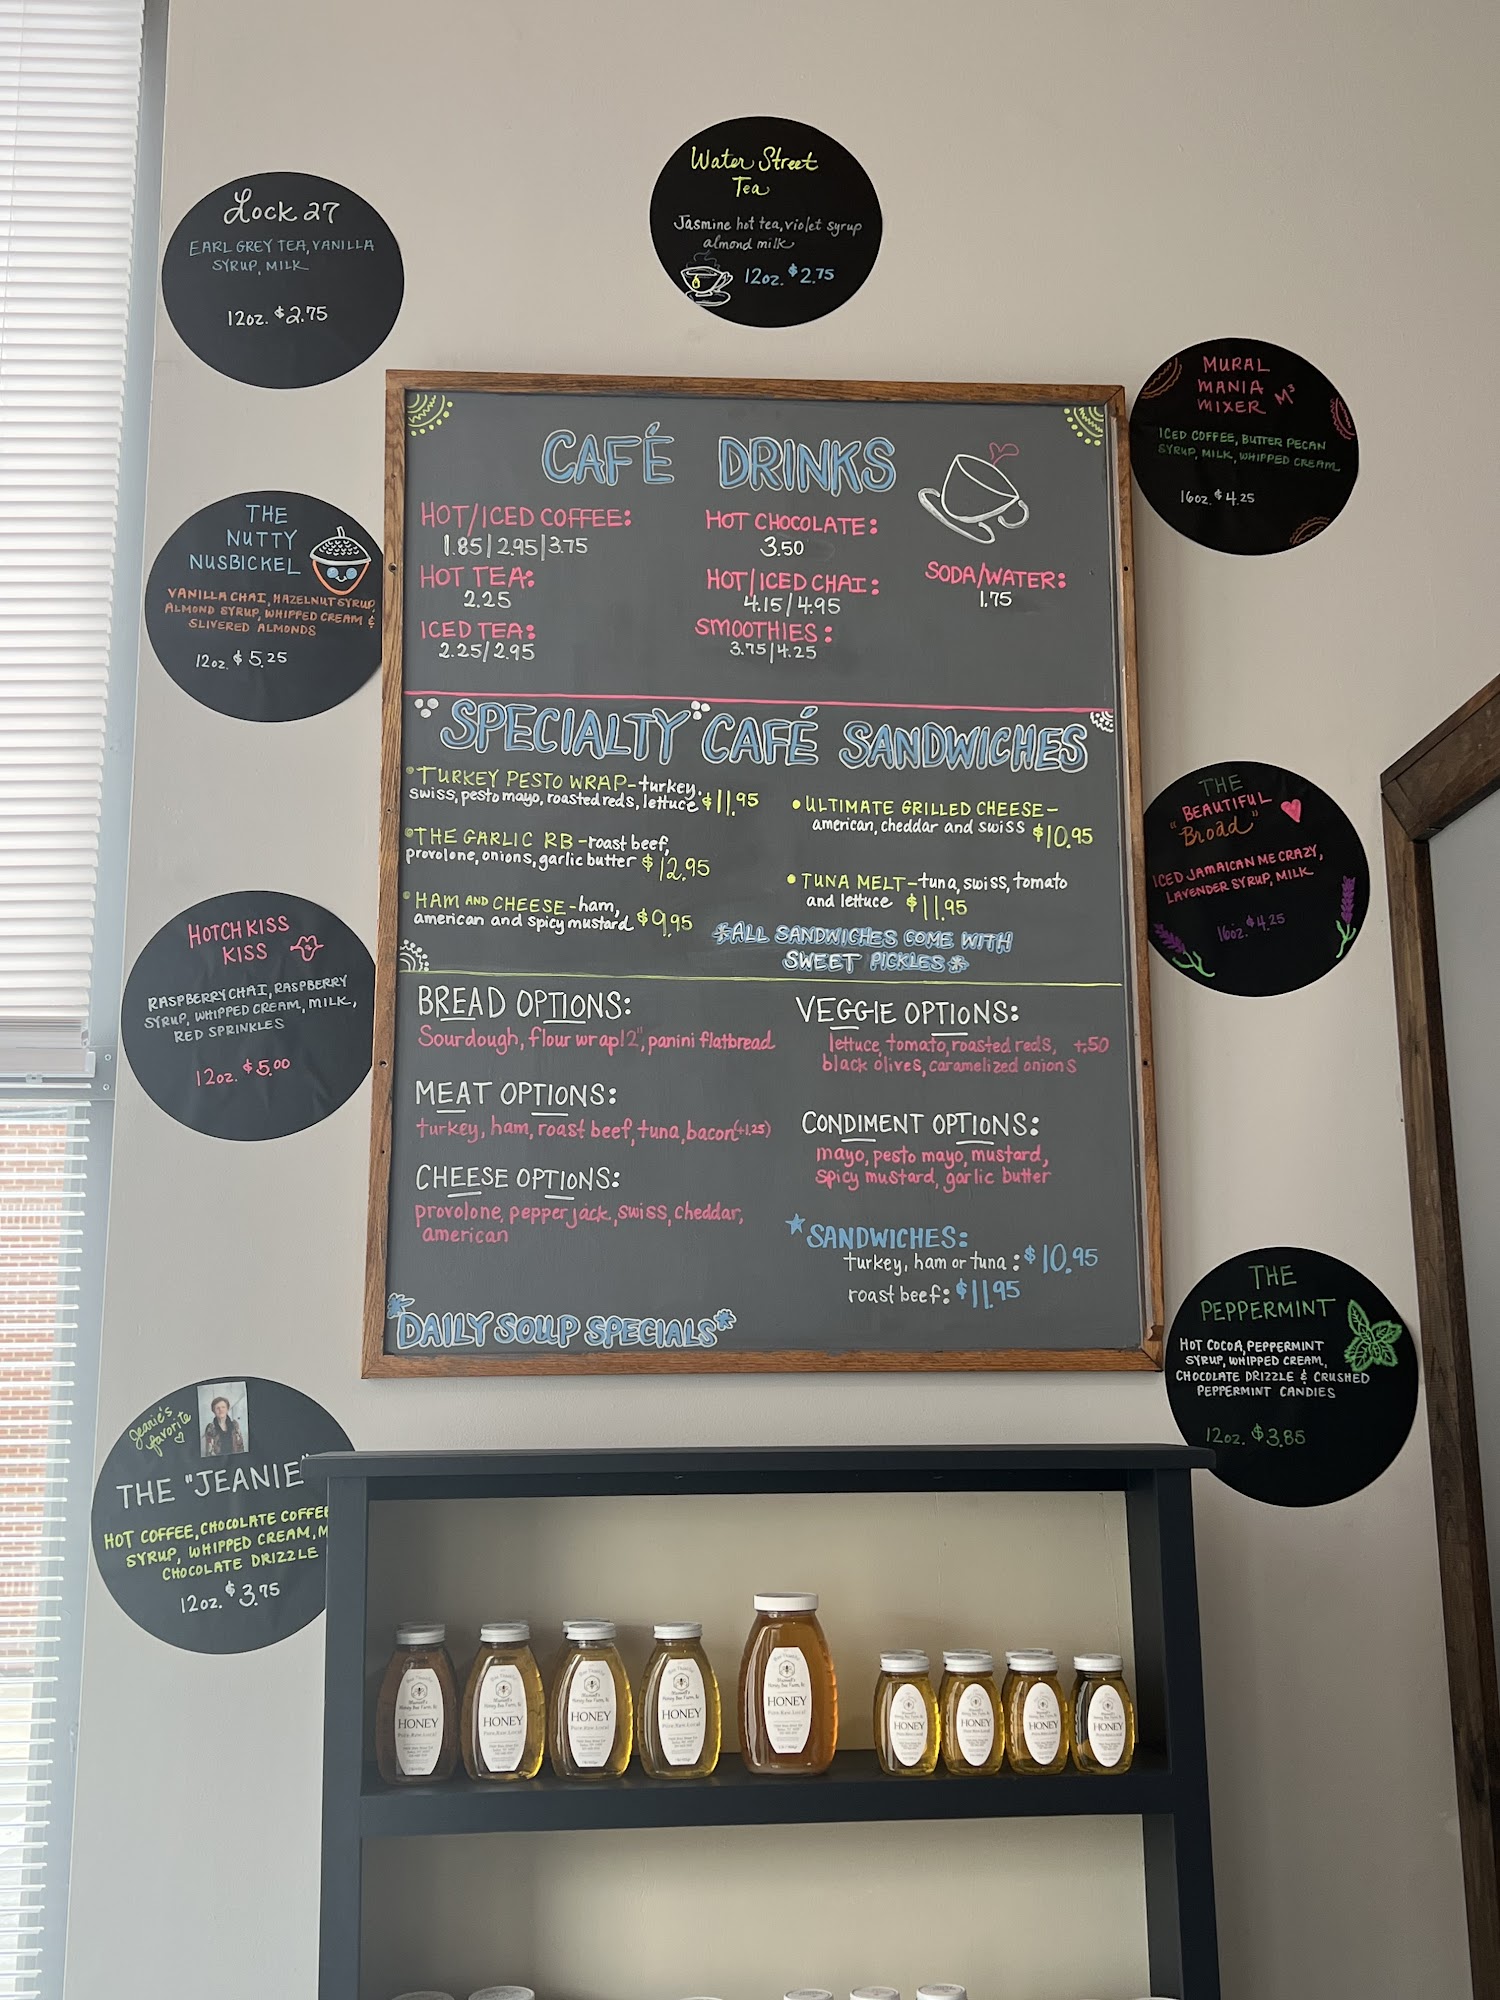 Water Street
Tea
Jasmine hot tea, violet syrup
almond milk
12oz. $2.75
Lock 27
EARL GREY TEA, VANILLA
SYRUP, MILK
12oz. $2.75
THE
NUTTY
NUSBICKEL
VANILLA CHAI, HAZELNUT SYRUP,
ALMOND SYRUP, WHIPPED CREAM &
SLIVERED ALMONDS
12oz. $5.25
HOTCH KISS
KISS
RASPBERRY CHAI, RASPBERRY
SYRUP, WHIPPED CREAM, MILK,
RED SPRINKLES
12oz. $5.00
Jeanie's
favorite
THE "JEANIE"
HOT COFFEE, CHOCOLATE COFFEE
SYRUP, WHIPPED CREAM, M
CHOCOLATE DRIZZLE
12oz. $3.75
CAFÉ DRINKS
HOT/ICED COFFEE:
1.85|2.95|3.75
HOT TEA:
2.25
ICED TEA:
2.25/2.95
HOT CHOCOLATE:
3.50
HOT/ICED CHAI:
4.15/4.95
SMOOTHIES:
3.75/4.25
SODA/WATER:
1.75
SPECIALTY CAFÉ SANDWICHES
•TURKEY PESTO WRAP-turkey,
swiss, pesto mayo, roasted reds, lettuce $11.95
•THE GARLIC RB-roast beef,
provolone, onions, garlic butter $12.95
•HAM AND CHEESE-ham,
american and spicy mustard $9.95
•ULTIMATE GRILLED CHEESE-
american, cheddar and swiss $10.95
•TUNA MELT-tuna, swiss, tomato
and lettuce $11.95
*ALL SANDWICHES COME WITH
SWEET PICKLES*
BREAD OPTIONS:
Sourdough, flour wrap 12", panini flatbread
MEAT OPTIONS:
turkey, ham, roast beef, tuna, bacon(+1.25)
CHEESE OPTIONS:
provolone, pepper jack, swiss, cheddar,
american
*DAILY SOUP SPECIALS*
VEGGIE OPTIONS:
lettuce, tomato, roasted reds, +.50
black olives, caramelized onions
CONDIMENT OPTIONS:
mayo, pesto mayo, mustard,
spicy mustard, garlic butter
*SANDWICHES:
turkey, ham or tuna: $10.95
roast beef: $11.95
MURAL
MANIA
MIXER M³
ICED COFFEE, BUTTER PECAN
SYRUP, MILK, WHIPPED CREAM
16oz. $4.25
THE
BEAUTIFUL
"Broad"
ICED JAMAICAN ME CRAZY,
LAVENDER SYRUP, MILK
16oz. $4.25
THE
PEPPERMINT
HOT COCOA, PEPPERMINT
SYRUP, WHIPPED CREAM,
CHOCOLATE DRIZZLE & CRUSHED
PEPPERMINT CANDIES
12oz. $3.85
HONEY
HONEY
HONEY
HONEY
HONEY
HONEY
HONEY
HONEY
HONEY